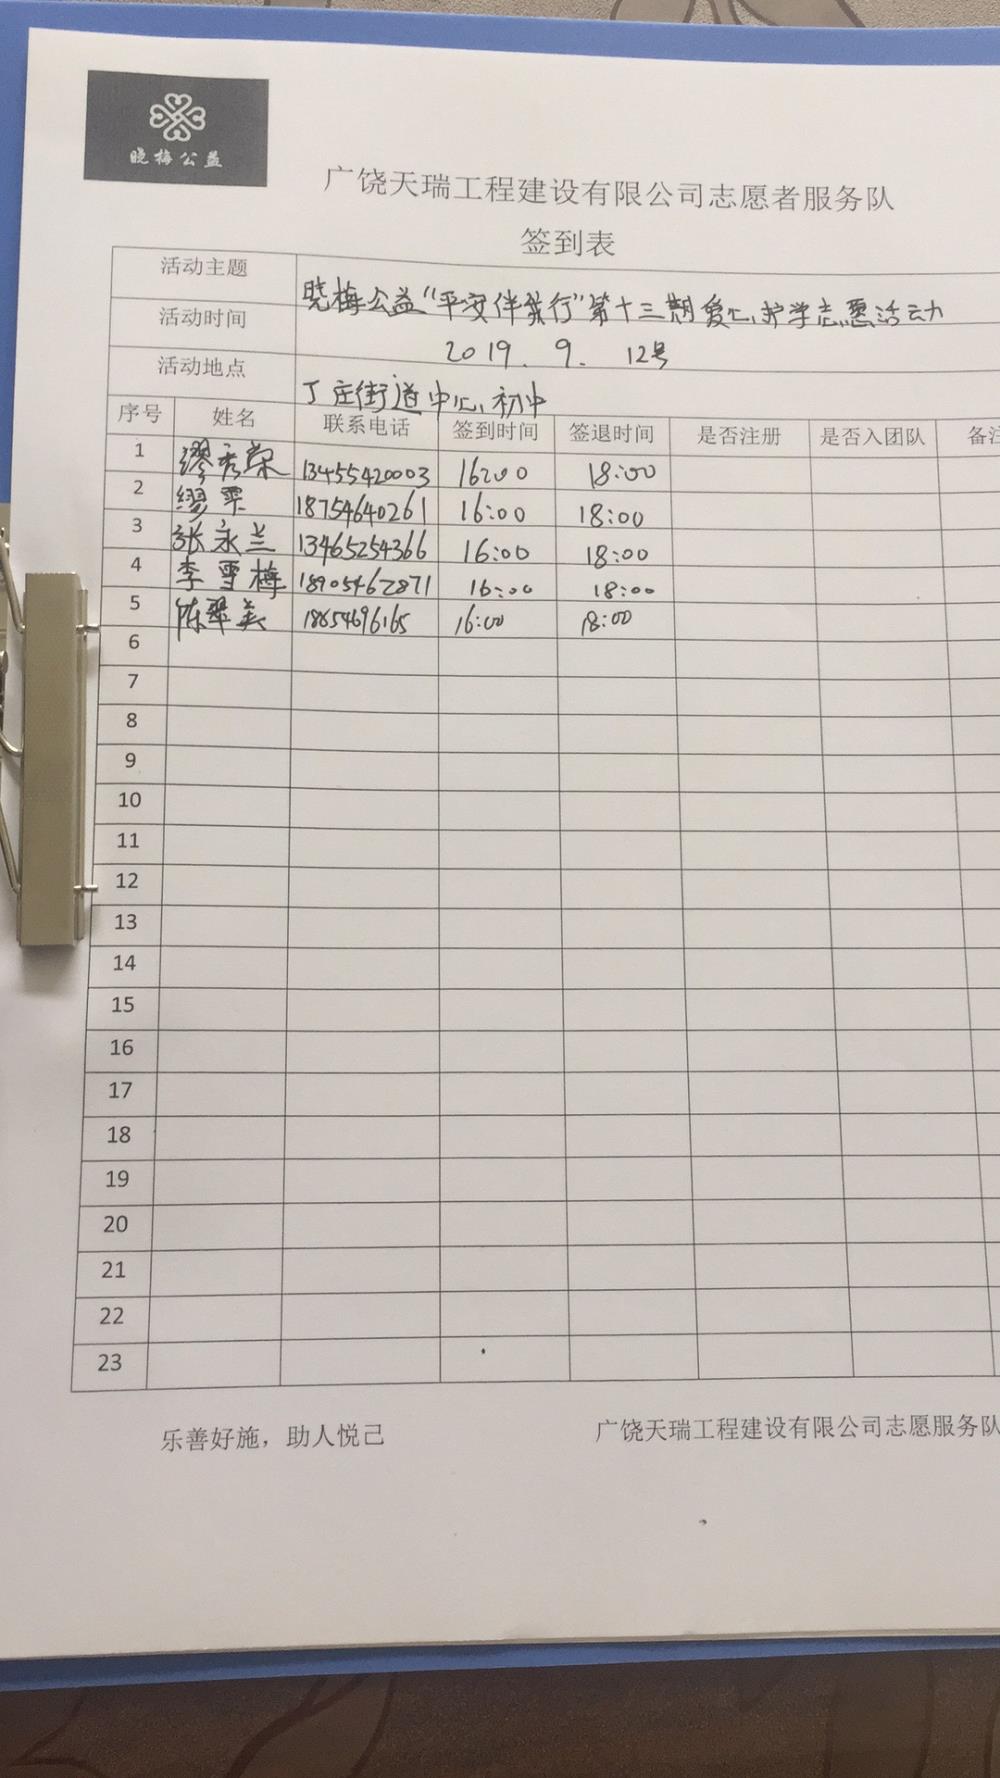 晓梅公益
广饶天瑞工程建设有限公司志愿者服务队
签到表
活动主题 晓梅公益“平安伴我行”第十三期爱心护学志愿活动
活动时间 2019.9.12号
活动地点 丁庄街道中心初中
序号 姓名 联系电话 签到时间 签退时间 是否注册 是否入团队 备注
1 缪秀荣 13455420003 16:00 18:00
2 缪霞 18754640261 16:00 18:00
3 张永兰 13465254366 16:00 18:00
4 李雪梅 18905462871 16:00 18:00
5 陈翠美 18654696165 16:00 18:00
6
7
8
9
10
11
12
13
14
15
16
17
18
19
20
21
22
23
乐善好施，助人悦己 广饶天瑞工程建设有限公司志愿服务队